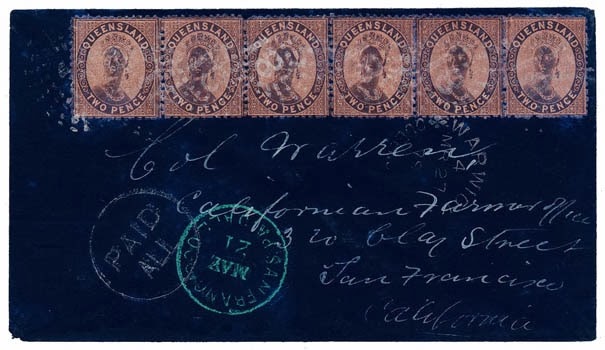 QUEENSLAND QUEENSLAND QUEENSLAND QUEENSLAND QUEENSLAND QUEENSLAND
TWO PENCE TWO PENCE TWO PENCE TWO PENCE TWO PENCE TWO PENCE
WARWICK
Col Warren
Californian Farmer Office
320 Clay Street
San Francisco
California
PAID
ALL
SAN FRANCISCO
MAY
21
PAID ALL